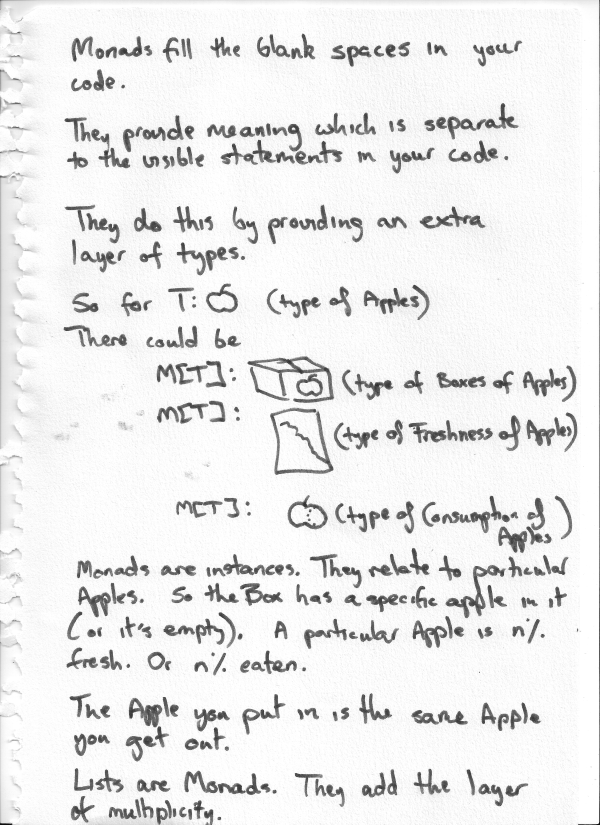 Monads fill the blank spaces in your
code.
They provide meaning which is separate
to the visible statements in your code.
They do this by providing an extra
layer of types.
So for T: (type of Apples)
There could be
M[T]: (type of Boxes of Apples)
M[T]: (type of Freshness of Apples)
M[T]: (type of Consumption of
Apples)
Monads are instances. They relate to particular
Apples. So the Box has a specific apple in it
(or it's empty). A particular Apple is n%
fresh. Or n% eaten.
The Apple you put in is the same Apple
you get out.
Lists are Monads. They add the layer
of multiplicity.